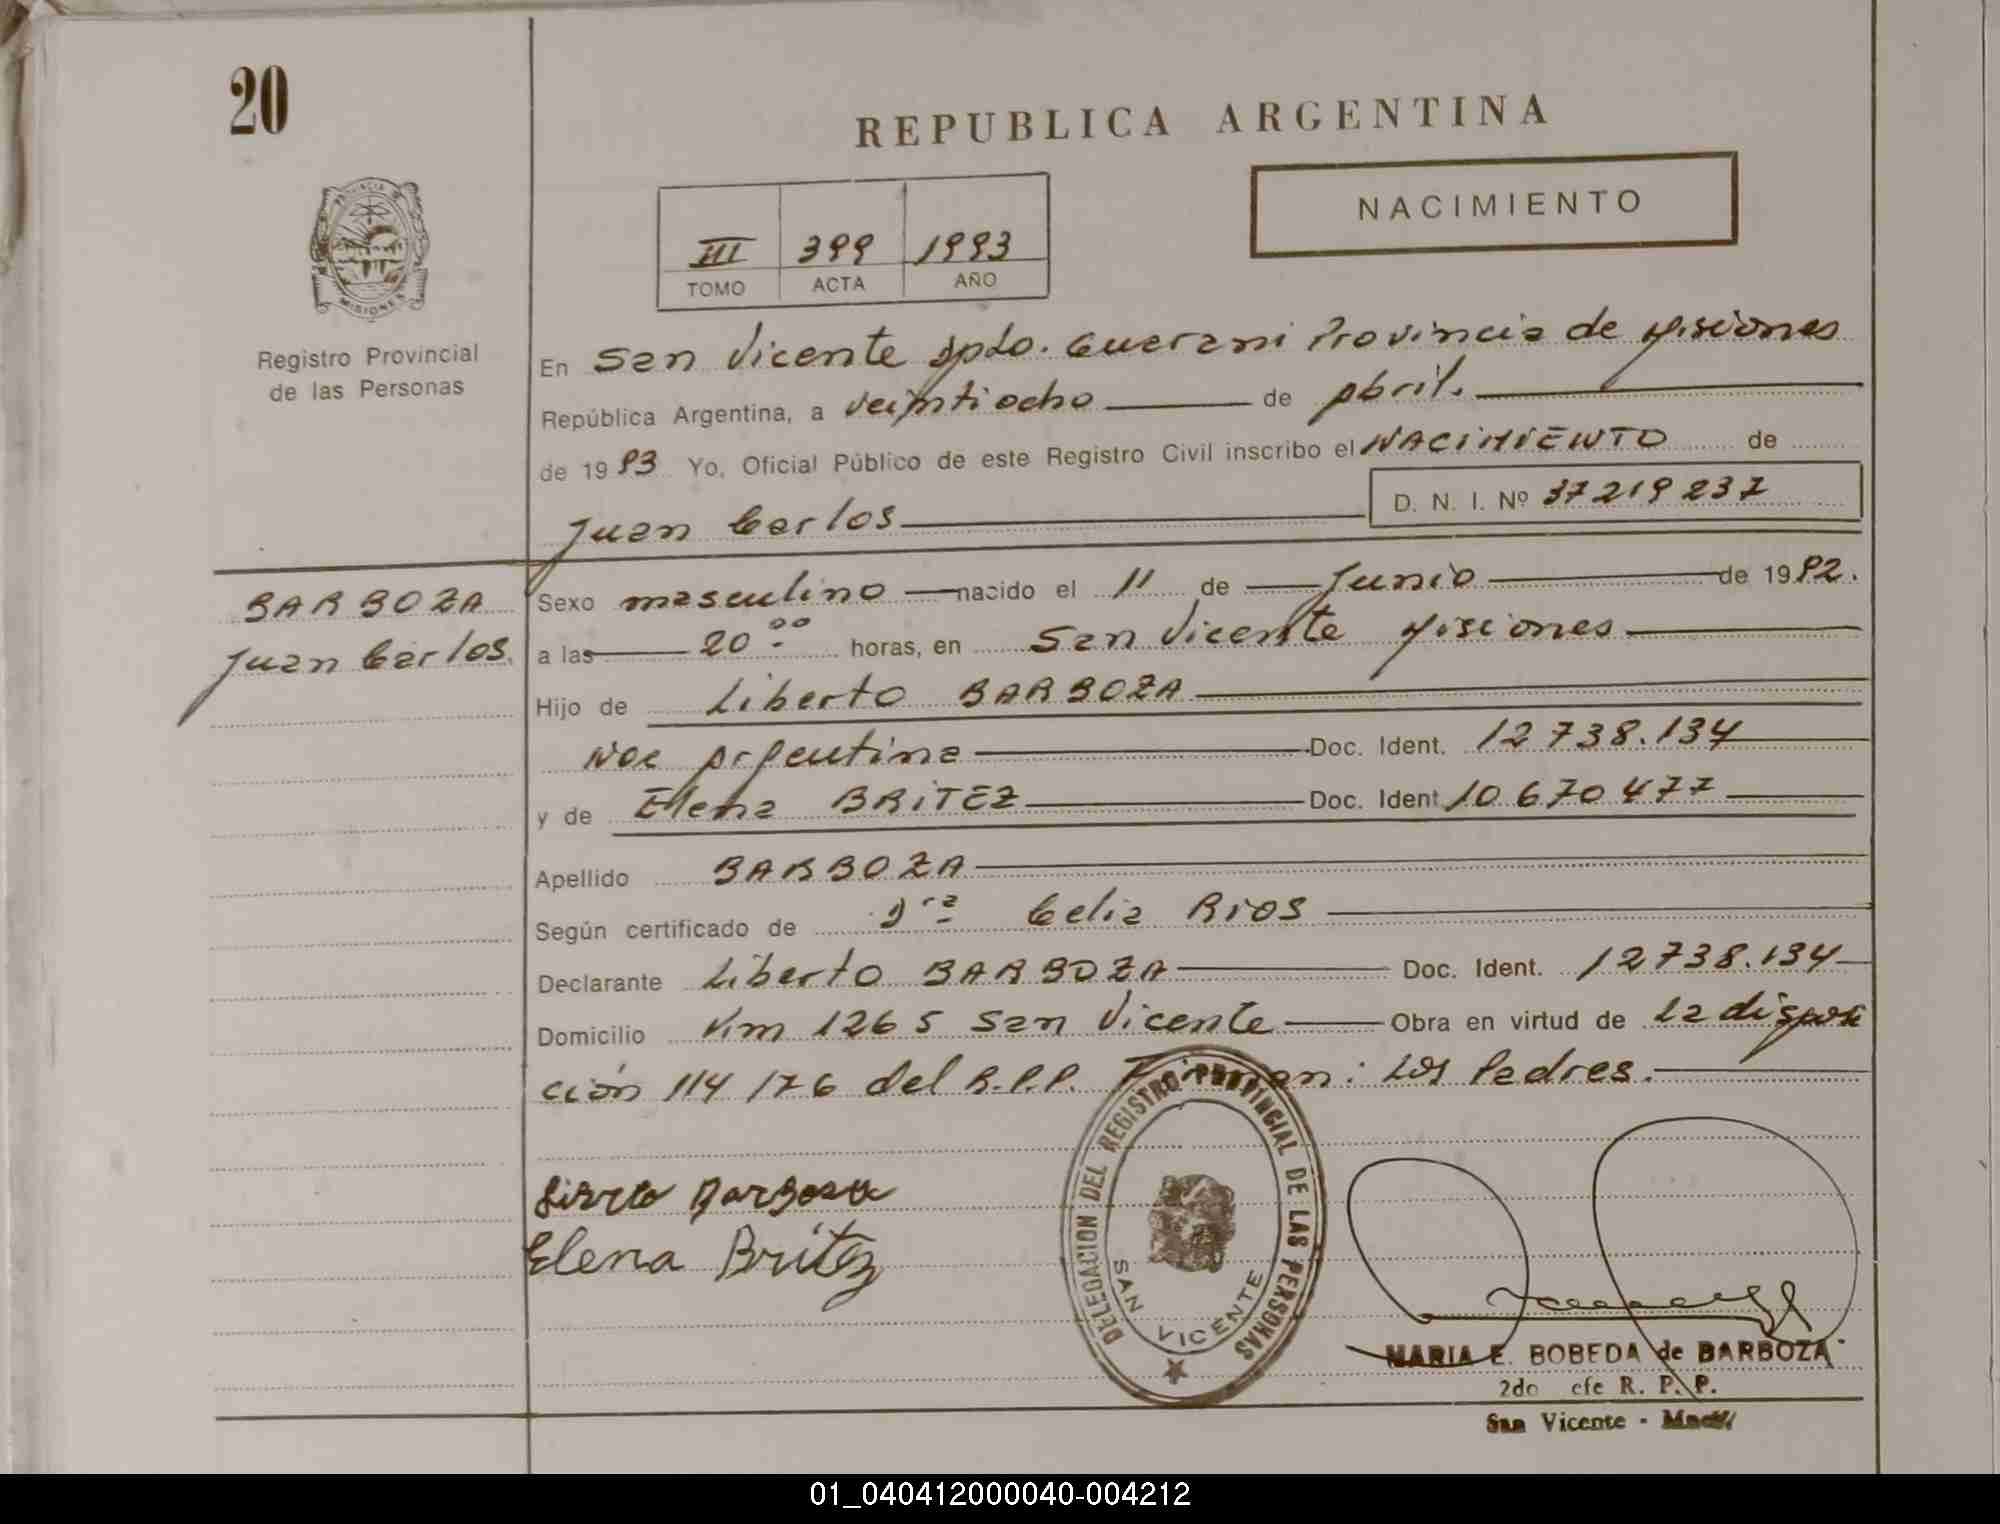 20
REPUBLICA ARGENTINA
NACIMIENTO
PROVINCIA DE MISIONES
III 399 1993
TOMO ACTA AÑO
Registro Provincial
de las Personas
En San Vicente Dpto. Guarani Provincia de Misiones
República Argentina, a veintiocho de Abril.
de 1993 Yo, Oficial Público de este Registro Civil inscribo el NACIMIENTO de
Juan Carlos D. N. I. Nº 37 219 237
BARBOZA
Juan Carlos.
Sexo masculino nacido el 11 de Junio de 1992.
a las 20 00 horas, en San Vicente Misiones
Hijo de Liberto BARBOZA
Nac Argentina Doc. Ident. 12 738.134
y de Elena BRITEZ Doc. Ident 10 670 477
Apellido BARBOZA
Según certificado de Dra Celia Rios
Declarante Liberto BARBOZA Doc. Ident. 12738.134
Domicilio Km 1265 San Vicente Obra en virtud de la disposi
ción 114/76 del R.P.P. Firman: Los Padres.
Elena Britez
DELEGACION DEL REGISTRO PROVINCIAL DE LAS PERSONAS
SAN VICENTE
MARIA E. BOBEDA de BARBOZA
2do efe R. P. P.
San Vicente -
01_040412000040-004212